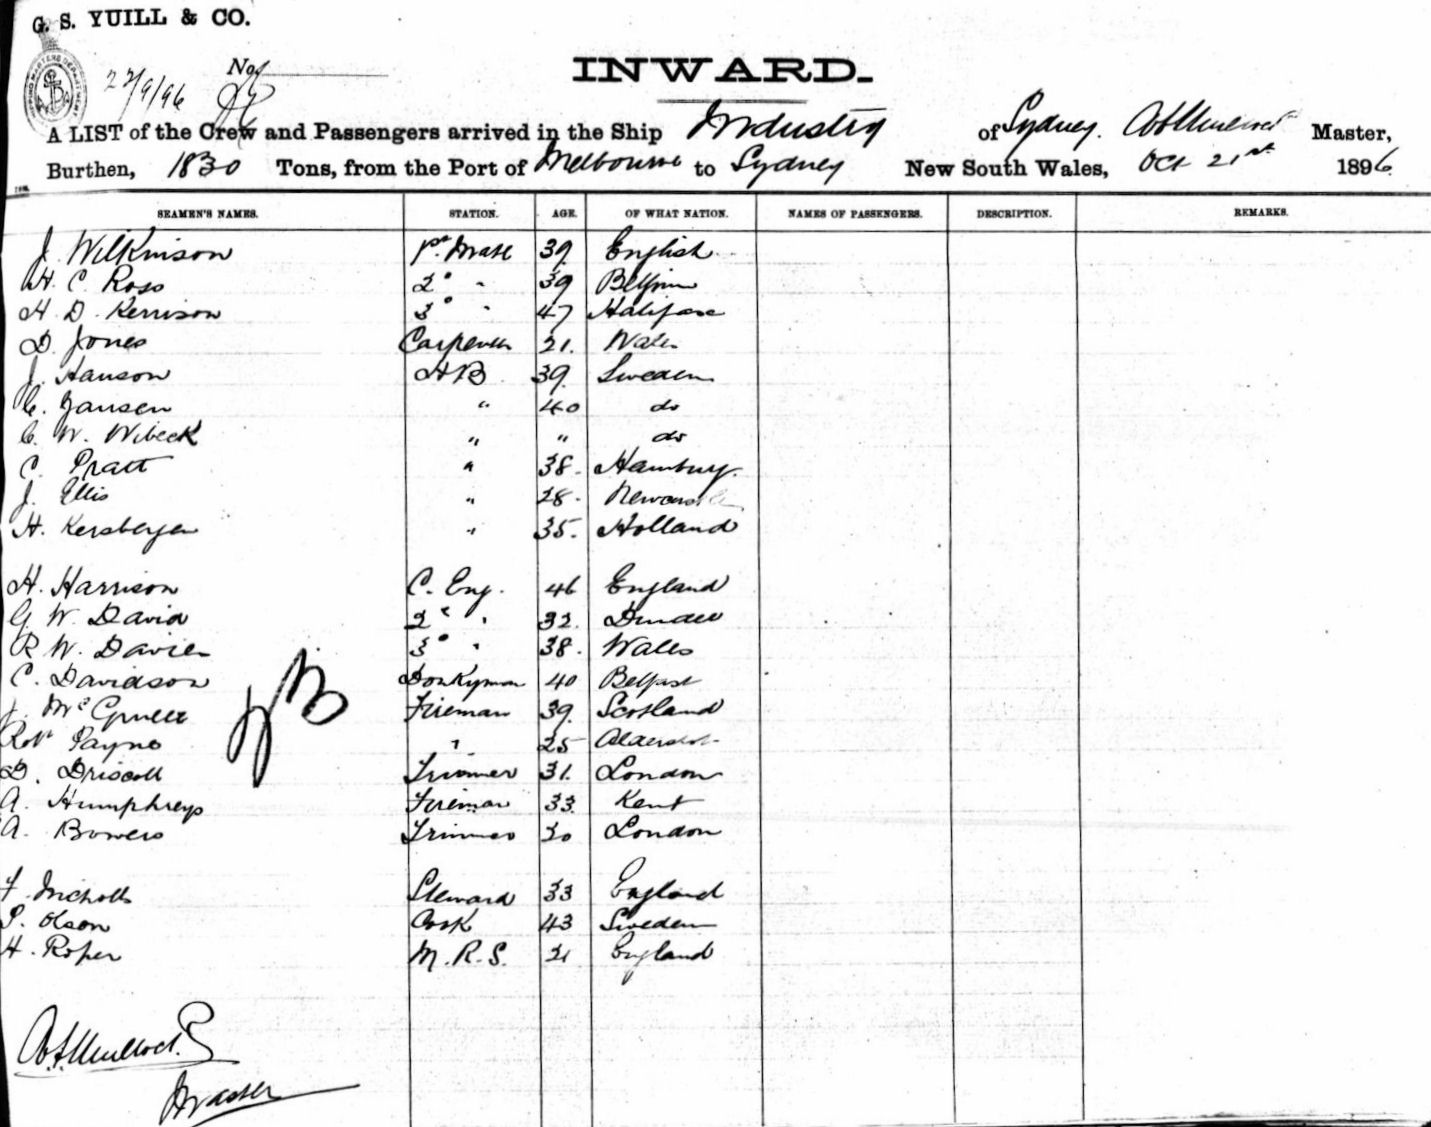 G. S. YUILL & CO.
No.
INWARD.
A LIST of the Crew and Passengers arrived in the Ship Industry of Sydney. Master,
Burthen, 1830 Tons, from the Port of Melbourne to Sydney New South Wales, Oct 21st 1896
SEAMEN'S NAMES. STATION. AGE. OF WHAT NATION. NAMES OF PASSENGERS. DESCRIPTION. REMARKS.
J. Wilkinson 1st Mate 39 English
W. C. Ross 2° " 39 Belgium
H. D. Kerrison 3° " 47 Halifax
D. Jones Carpenter 21. Wales
J. Hanson AB 39. Sweden
C. Jansen " 40 do
C. W. Wibeck " " do
C. Pratt " 38. Hamburg.
J. Ellis " 28. Newcastle
H. Kersbergen " 35. Holland
H. Harrison C. Eng. 46 England
G W. David 2 " 32. Dundee
R W. Davies 3° " 38. Wales
C. Davidson Donkyman 40 Belfast
J. Fireman 39. Scotland
Robt Payne " 25 Aldershot
D. Driscoll Trimmer 31. London
A. Humphreys Fireman 33. Kent
A. Bowers Trimmer 30 London
F. Nicholls Steward 33 England
P. Olson Cook 43 Sweden
H. Roper M. R. S. 21 England
Master